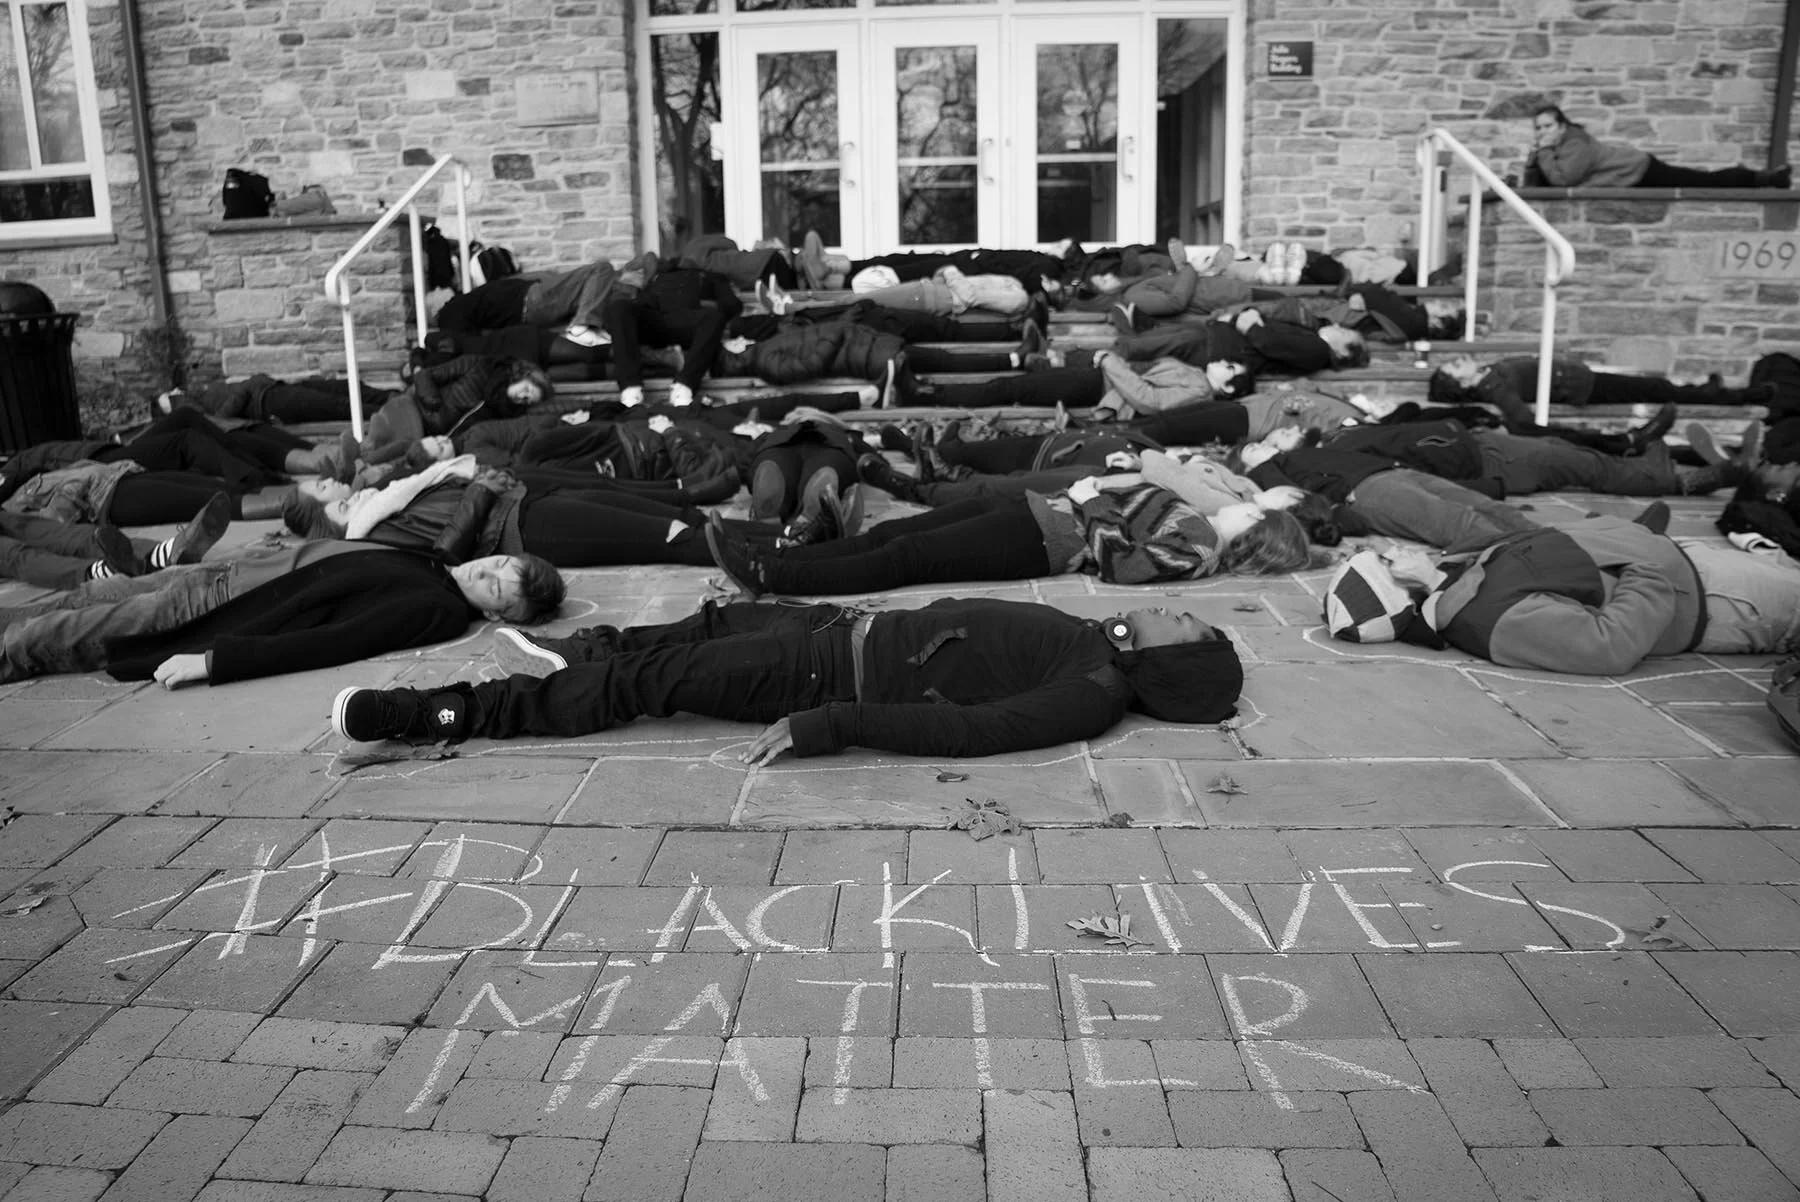 1969
#BLACKLIVES
MATTER